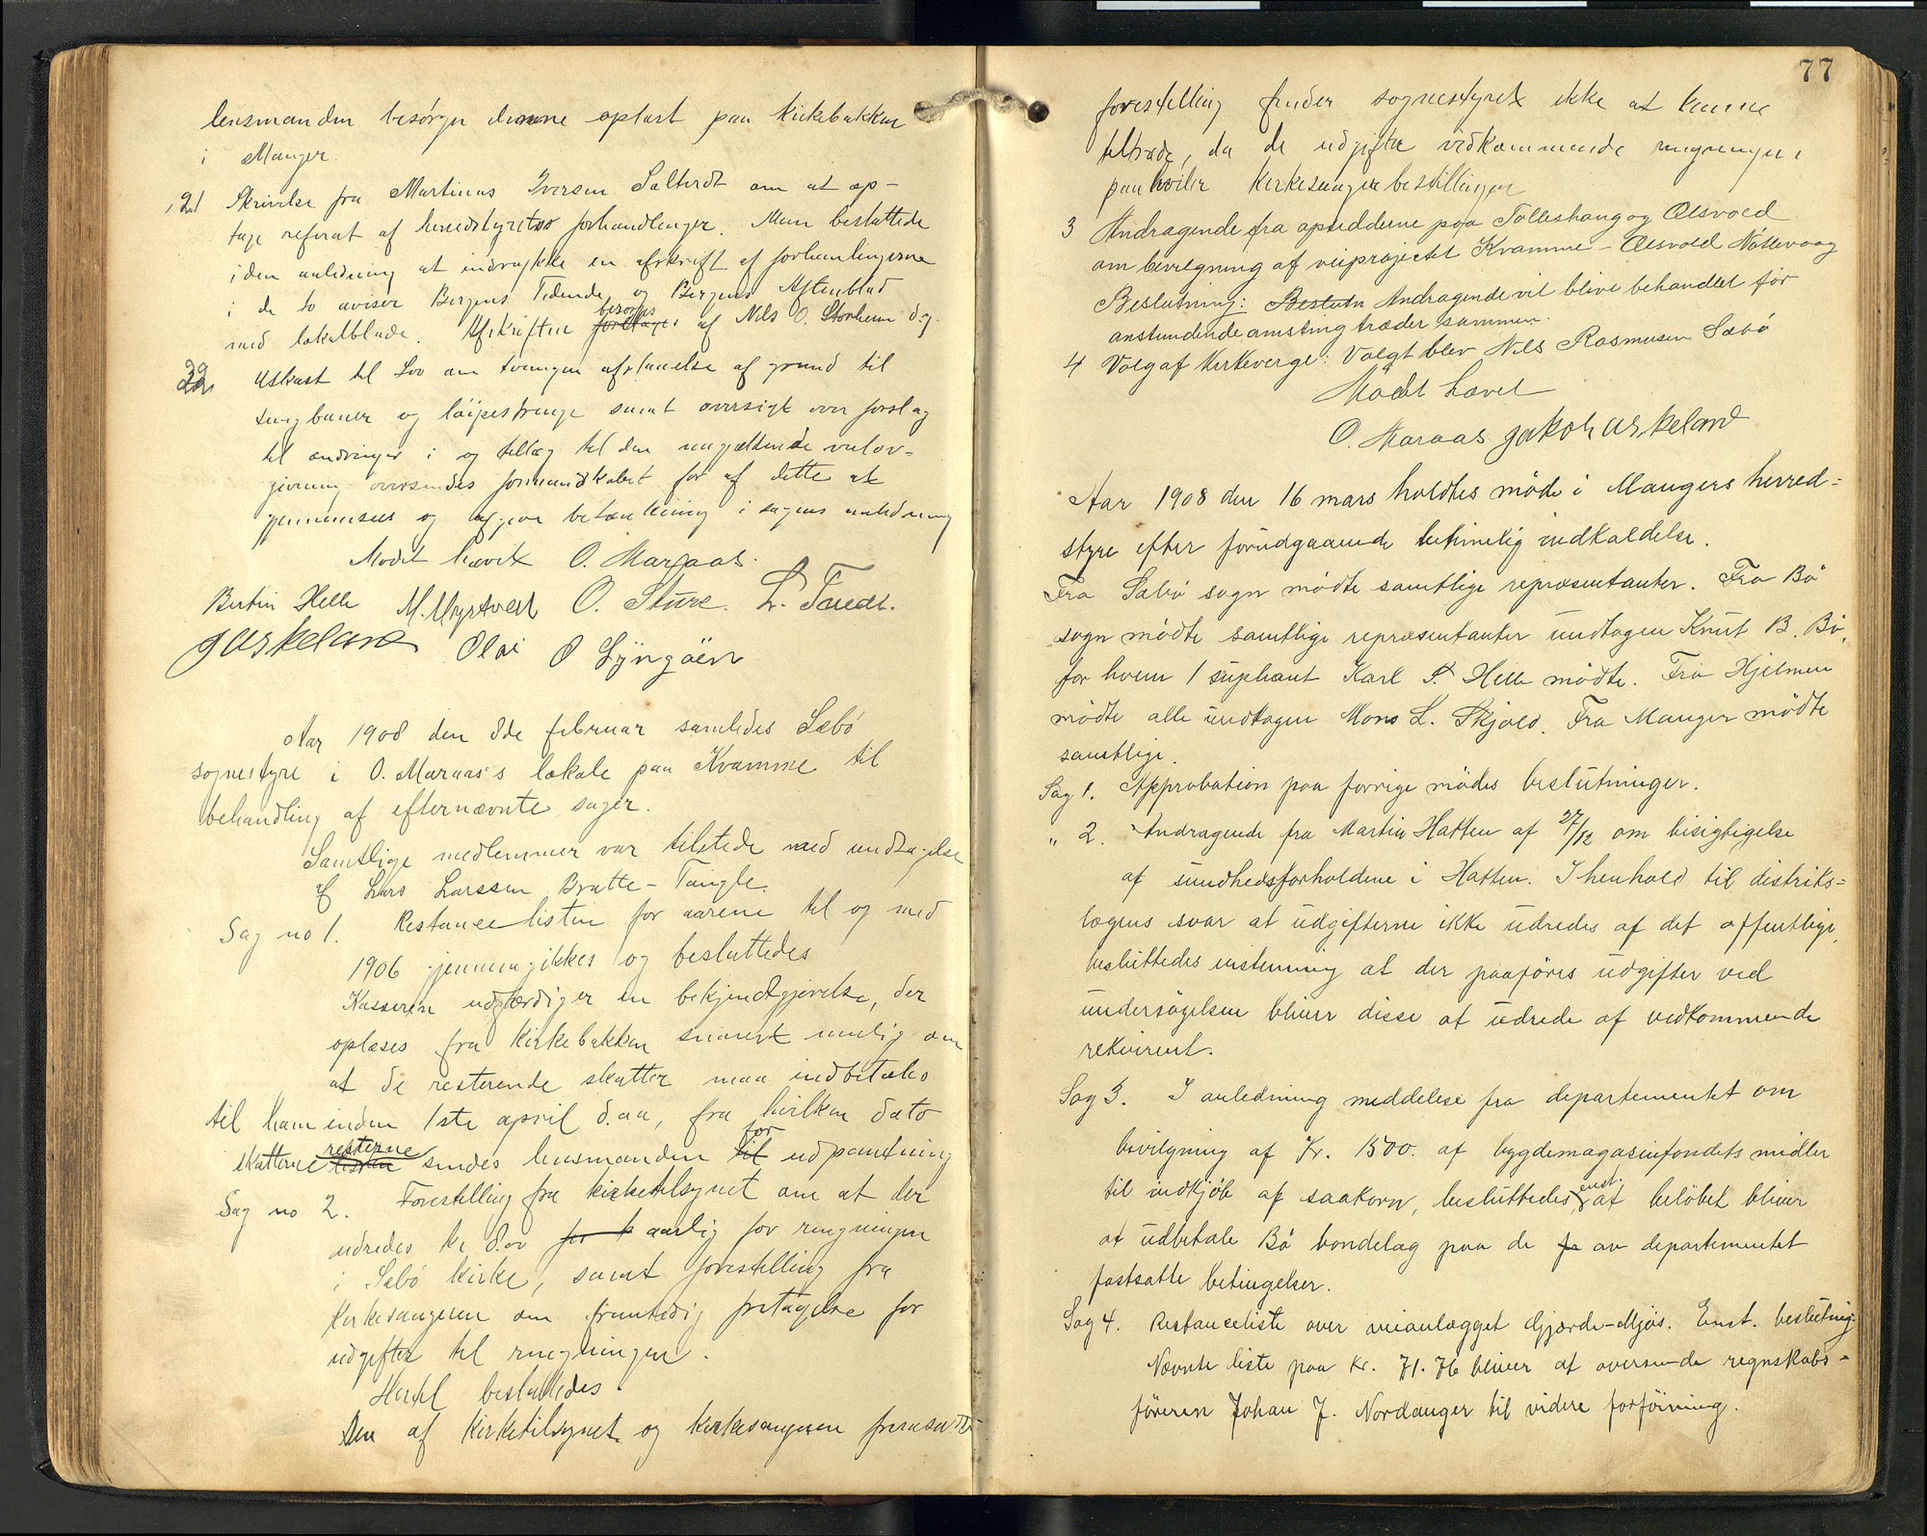 lensmanden besørger denne oplæst paa kirkebakken
i Manger.
21 Skrivelse fra Martinus Iversen Sæltredt om at op-
tage referat af herredstyrets forhandlinger. Man besluttede
i den anledning at indrykke en afskrift af forhandlingerne
i de to aviser Bergens Tidende og Bergens Aftenblad
med lokalblade. Afskriften besørges af Nils O. Storheim d.y.
22 Utkast til Lov om tvungen afstaaelse af grund til
taugbaner og løipestrenge samt oversigt over forslag
til ændringer i og tillæg til den nugjældende veilov-
givning oversendes formandskabet for af dette at
gjennemsees og afgive betænkning i sagens anledning
Mødet hævet O. Maraas.
Bertin Helle M. Myrtvedt O. Sture. L. Tvedt.
J Askeland Olai O Lyngøen
Aar 1908 den 8de februar samledes Sæbø
sognestyre i O. Maraas's lokale paa Kvamme til
behandling af efternævnte sager.
Samtlige medlemmer var tilstede med undtagelse
af Lars Larssen Bratte-Taugle.
Sag no 1. Restancelisten for aarene til og med
1906 gjennemgikkes og besluttedes
Kassereren udfærdiger en bekjendtgjørelse, der
oplæses fra Kirkebakken snarest mulig om
at de resterende skatter maa indbetales
til ham inden 1ste april d. aa, fra hvilken dato
skatterne resterne sendes lensmanden til for udpantning
Sag no 2. Forestilling fra kirketilsynet om at der
udredes kr 8.00 for aarlig for ringningen
i Sæbø kirke, samt forestilling fra
kirkesangeren om fremtidig fritagelse for
udgifter til ringningen.
Hertil besluttedes
Den af kirketilsynet og kirkesangeren fremsatte
77
forestilling finder sognestyret ikke at kunne
tiltræde, da de udgifter vedkommende ringningen
paahviler kirkesangerbestillingen
3 Andragende fra opsidderne paa Tolleshaug og Olsvold
om bevilgning af veiprojectet Kvamme - Olsvold Nøttevaag
Beslutning: Beslutn Andragende vil blive behandlet før
anstundende amsting træder sammen.
4 Valg af Kirkeverge: Valgt blev Nils Rasmusen Sæbø
Mødet hævet
O. Maraas Jakob Askeland
Aar 1908 den 16 mars holdtes møde i Mangers herred-
styre efter forudgaaende betimelig indkaldelse.
Fra Sæbø sogn mødte samtlige repræsentanter. Fra Bø
sogn mødte samtlige repræsentanter undtagen Knut B. Bø,
for hvem 1 suplant Karl P. Helle mødte. Fra Hjelmen
mødte alle undtagen Mons L. Skjold. Fra Manger mødte
samtlige.
Sag 1. Approbation paa forrige mødes beslutninger.
" 2. Andragende fra Martin Hatten af 27/12 om besigtigelse
af sundhedsforholdene i Hatten. I henhold til distrikts-
lægens svar at udgifterne ikke udredes af det offentlige,
besluttedes enstemmig at der paaføres udgifter ved
undersøgelsen bliver disse at udrede af vedkommende
rekvirent.
Sag 3. I anledning meddelelse fra departementet om
bevilgning af Kr. 1500. af bygdemagasinfondets midler
til indkjøb af saakorn, besluttedes enst. at beløbet bliver
at udbetale Bø bondelag paa de fa av departementet
fastsatte betingelser.
Sag 4. Restanceliste over veianlægget Gjærde-Mjøs. Enst. beslutning:
Nævnte liste paa kr. 71.76 bliver at oversende regnskabs-
føreren Johan J. Nordanger til videre forføining.